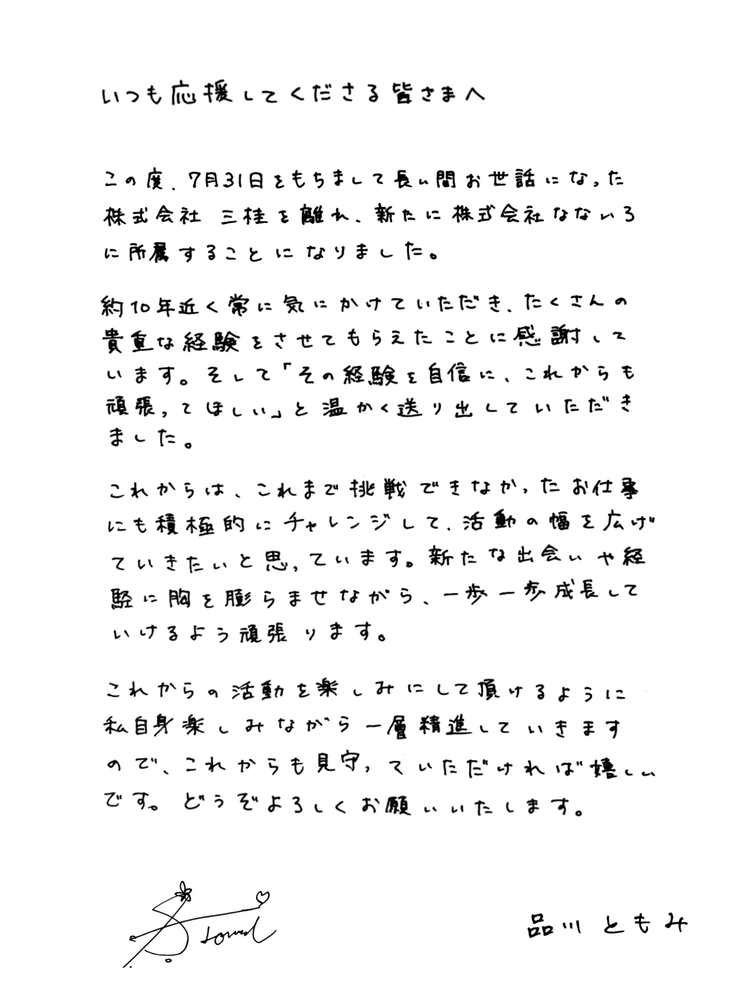 いつも応援してくださる皆さまへ
この度、7月31日をもちまして長い間お世話になった
株式会社 三桂を離れ、新たに株式会社なないろ
に所属することになりました。
約10年近く常に気にかけていただき、たくさんの
貴重な経験をさせてもらえたことに感謝して
います。そして「その経験を自信に、これからも
頑張ってほしい」と温かく送り出していただき
ました。
これからは、これまで挑戦できなかったお仕事
にも積極的にチャレンジして、活動の幅を広げ
ていきたいと思っています。新たな出会いや経
験に胸を膨らませながら、一歩一歩成長して
いけるよう頑張ります。
これからの活動を楽しみにして頂けるように
私自身楽しみながら一層精進していきます
ので、これからも見守っていただければ嬉しい
です。どうぞよろしくお願いいたします。
品川ともみ